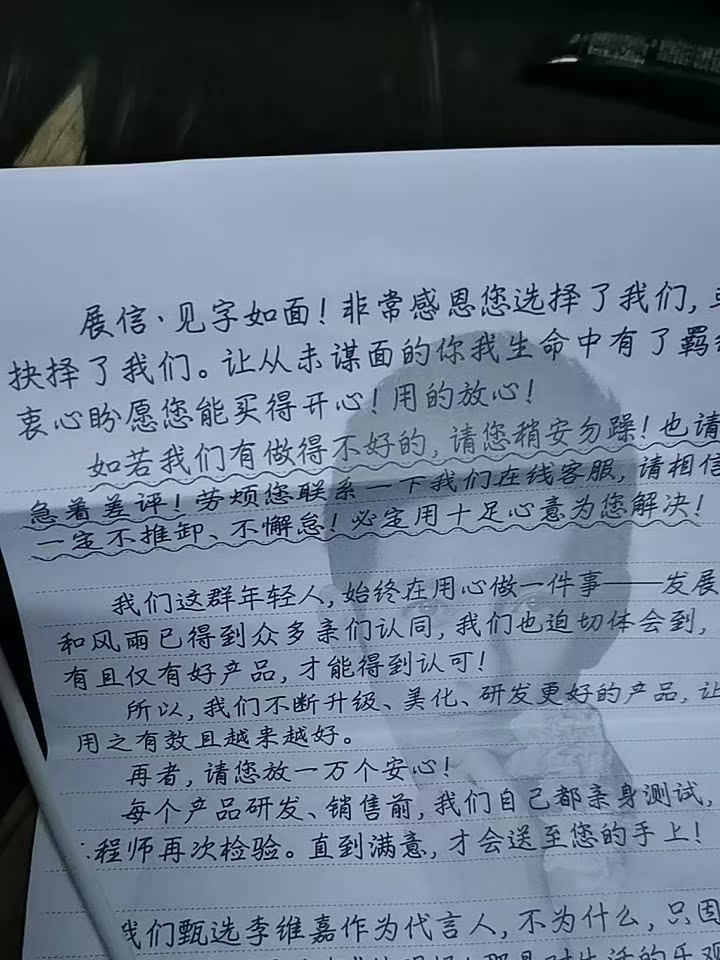 展信·见字如面！非常感恩您选择了我们，
抉择了我们。让从未谋面的你我生命中有了羁
衷心盼愿您能买得开心！用的放心！
如若我们有做得不好的，请您稍安勿躁！也请
急着差评！劳烦您联系一下我们在线客服，请相信
一定不推卸、不懈怠！必定用十足心意为您解决！
我们这群年轻人，始终在用心做一件事——发展
和风雨已得到众多亲们认同，我们也迫切体会到，
有且仅有好产品，才能得到认可！
所以，我们不断升级、美化、研发更好的产品，让
用之有效且越来越好。
再者，请您放一万个安心！
每个产品研发、销售前，我们自己都亲身测试，
程师再次检验。直到满意，才会送至您的手上！
我们甄选李维嘉作为代言人，不为什么，只因
对生活的乐观